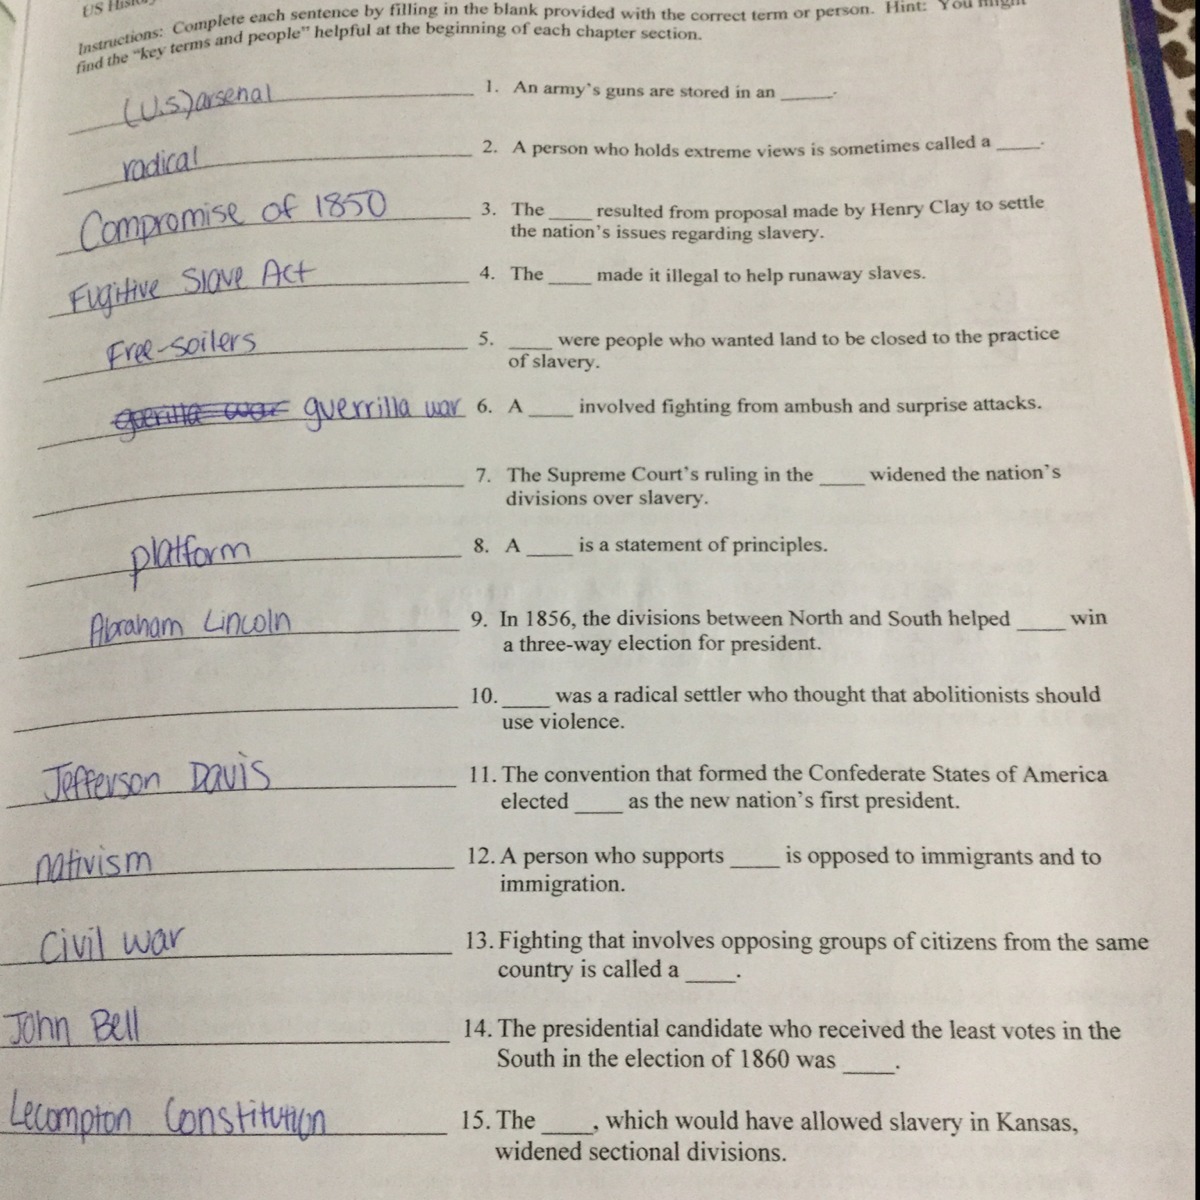 US History
Instructions: Complete each sentence by filling in the blank provided with the correct term or person. Hint: You might
find the "key terms and people" helpful at the beginning of each chapter section.
(U.S) arsenal 1. An army's guns are stored in an _____.
radical 2. A person who holds extreme views is sometimes called a _____.
Compromise of 1850 3. The _____ resulted from proposal made by Henry Clay to settle
the nation's issues regarding slavery.
Fugitive Slave Act 4. The _____ made it illegal to help runaway slaves.
Free-soilers 5. _____ were people who wanted land to be closed to the practice
of slavery.
guerilla war guerrilla war 6. A _____ involved fighting from ambush and surprise attacks.
7. The Supreme Court's ruling in the _____ widened the nation's
divisions over slavery.
platform 8. A _____ is a statement of principles.
Abraham Lincoln 9. In 1856, the divisions between North and South helped _____ win
a three-way election for president.
10. _____ was a radical settler who thought that abolitionists should
use violence.
Jefferson Davis 11. The convention that formed the Confederate States of America
elected _____ as the new nation's first president.
nativism 12. A person who supports _____ is opposed to immigrants and to
immigration.
Civil war 13. Fighting that involves opposing groups of citizens from the same
country is called a _____.
John Bell 14. The presidential candidate who received the least votes in the
South in the election of 1860 was _____.
Lecompton Constitution 15. The _____, which would have allowed slavery in Kansas,
widened sectional divisions.